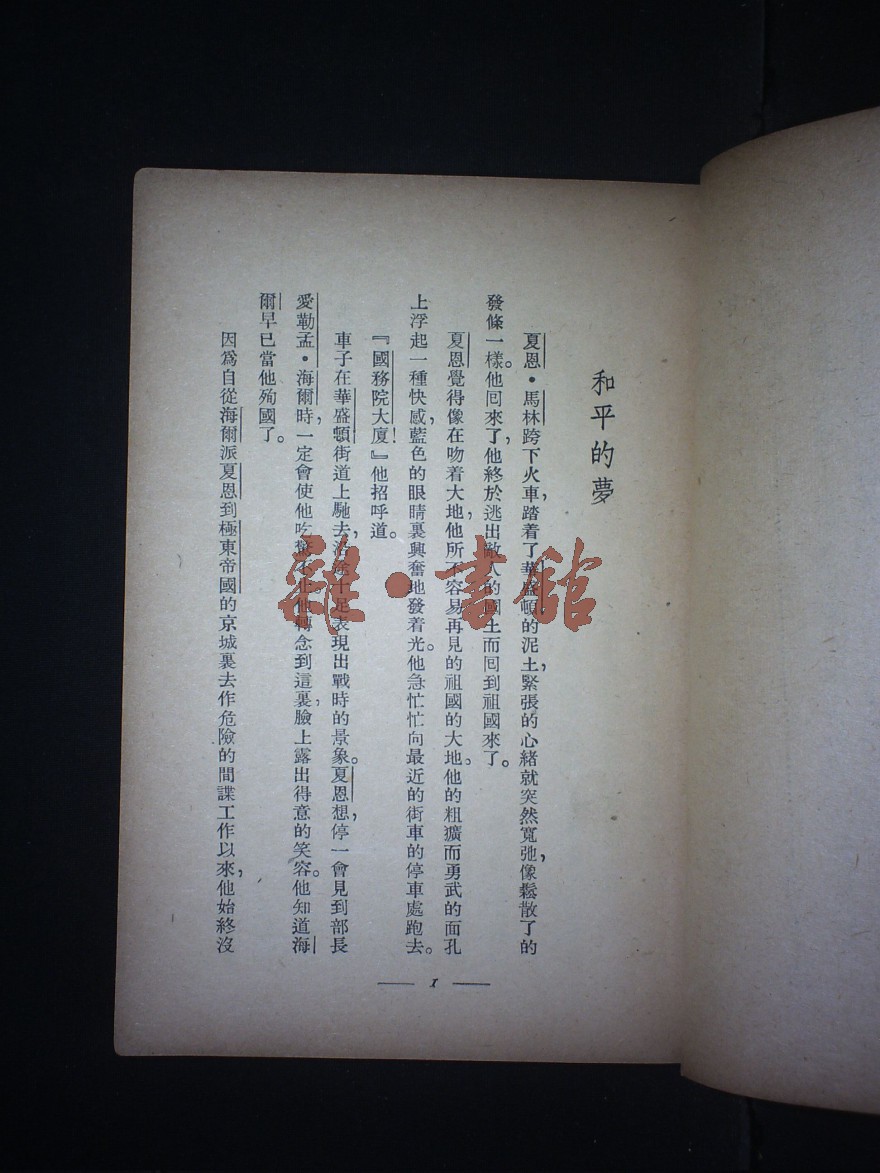 和平的夢
夏恩·馬林跨下火車，踏着了華盛頓的泥土，緊張的心緒就突然寬弛，像鬆散了的
發條一樣。他回來了，他終於逃出敵人的國土而回到祖國來了。
夏恩覺得像在吻着大地，他所不容易再見的祖國的大地。他的粗獷而勇武的面孔
上浮起一種快感，藍色的眼睛裏興奮地發着光。他急忙忙向最近的街車的停車處跑去。
『國務院大廈！』他招呼道。
車子在華盛頓街道上馳去，沿途十足表現出戰時的景象。夏恩想，停一會見到部長
愛勒孟·海爾時，一定會使他吃驚不止。他轉念到這裏，臉上露出得意的笑容。他知道海
爾早已當他殉國了。
因爲自從海爾派夏恩到極東帝國的京城裏去作危險的間諜工作以來，他始終沒
— 1 —
雜·書館